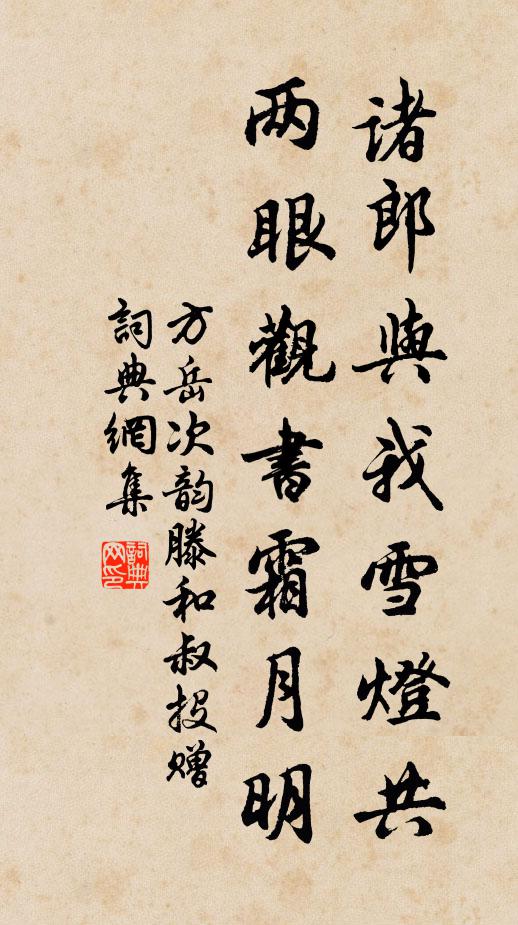 诸郎與我雪燈共
两眼觀書霜月明
方岳次韵滕和叔投赠
詞典網集
詞典网印